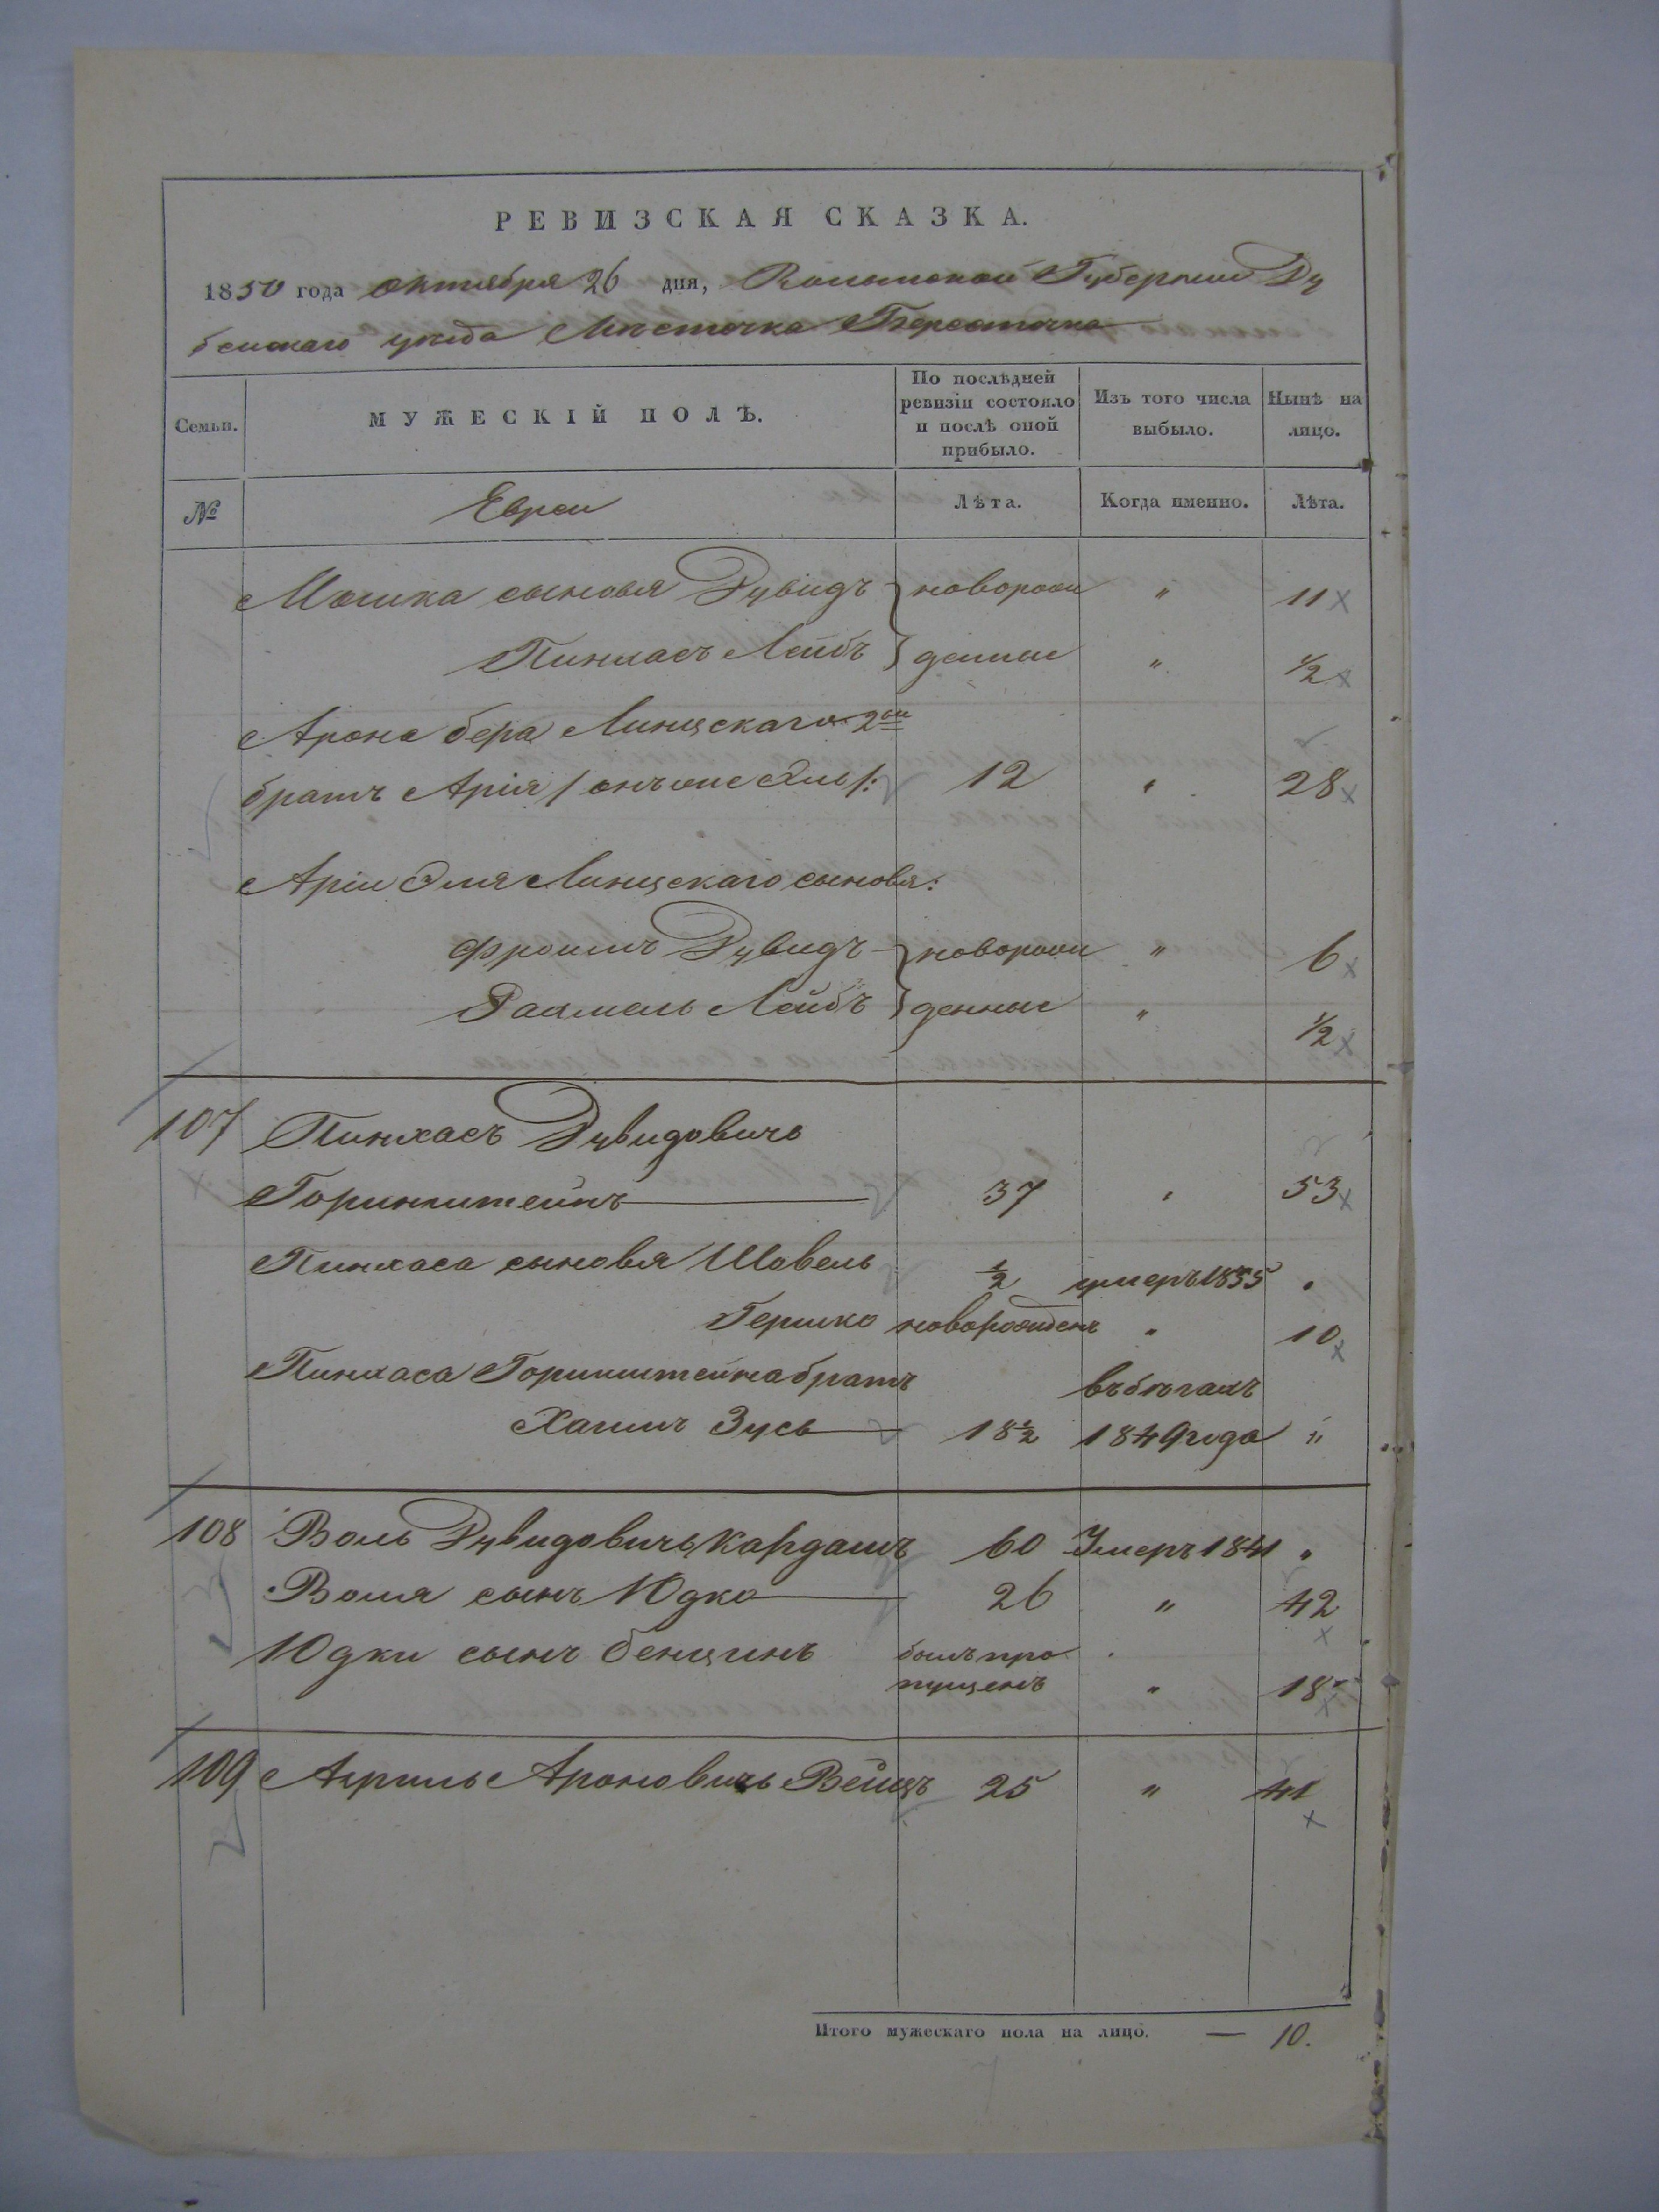 РЕВИЗСКАЯ СКАЗКА.
1850 года октября 26 дня, Волынской Губернии Ду
бенскаго уезда Местечка Берестечка
Семьи.
МУЖЕСКІЙ ПОЛЪ.
По послѣдней ревизіи состояло и послѣ оной прибыло.
Изъ того числа выбыло.
Нынѣ на лицо.
№ Евреи Лѣта. Когда именно. Лѣта.
Мошка сыновья Дувидъ } новорож " 11
Пинхасъ Лейбъ } денные " ½
Арона Бера Линцскаго 2ой
братъ Арія /: онъ же Эль :/ 12 " 28
Аріи Эля Линцскаго сыновья:
Фроимъ Дувидъ } новорож " 6
Рахмель Лейбъ } денные " ½
107 Пинхасъ Дувидовичь
Горинштейнъ 37 " 53
Пинхаса сыновья Шовель ½ умеръ 1835 "
Гершко новорожденъ " 10
Пинхаса Горинштейна братъ въ бѣгахъ
Хаимъ Зусь 18½ 1849 года "
108 Воль Дувидовичь Кардашъ 60 Умеръ 1841 "
Воля сынъ Юдко 26 " 42
Юдки сынъ Бенцинъ былъ про
пущенъ " 18
109 Ароновичь Вейцъ 25 " 41
Итого мужескаго пола на лицо. — 10.